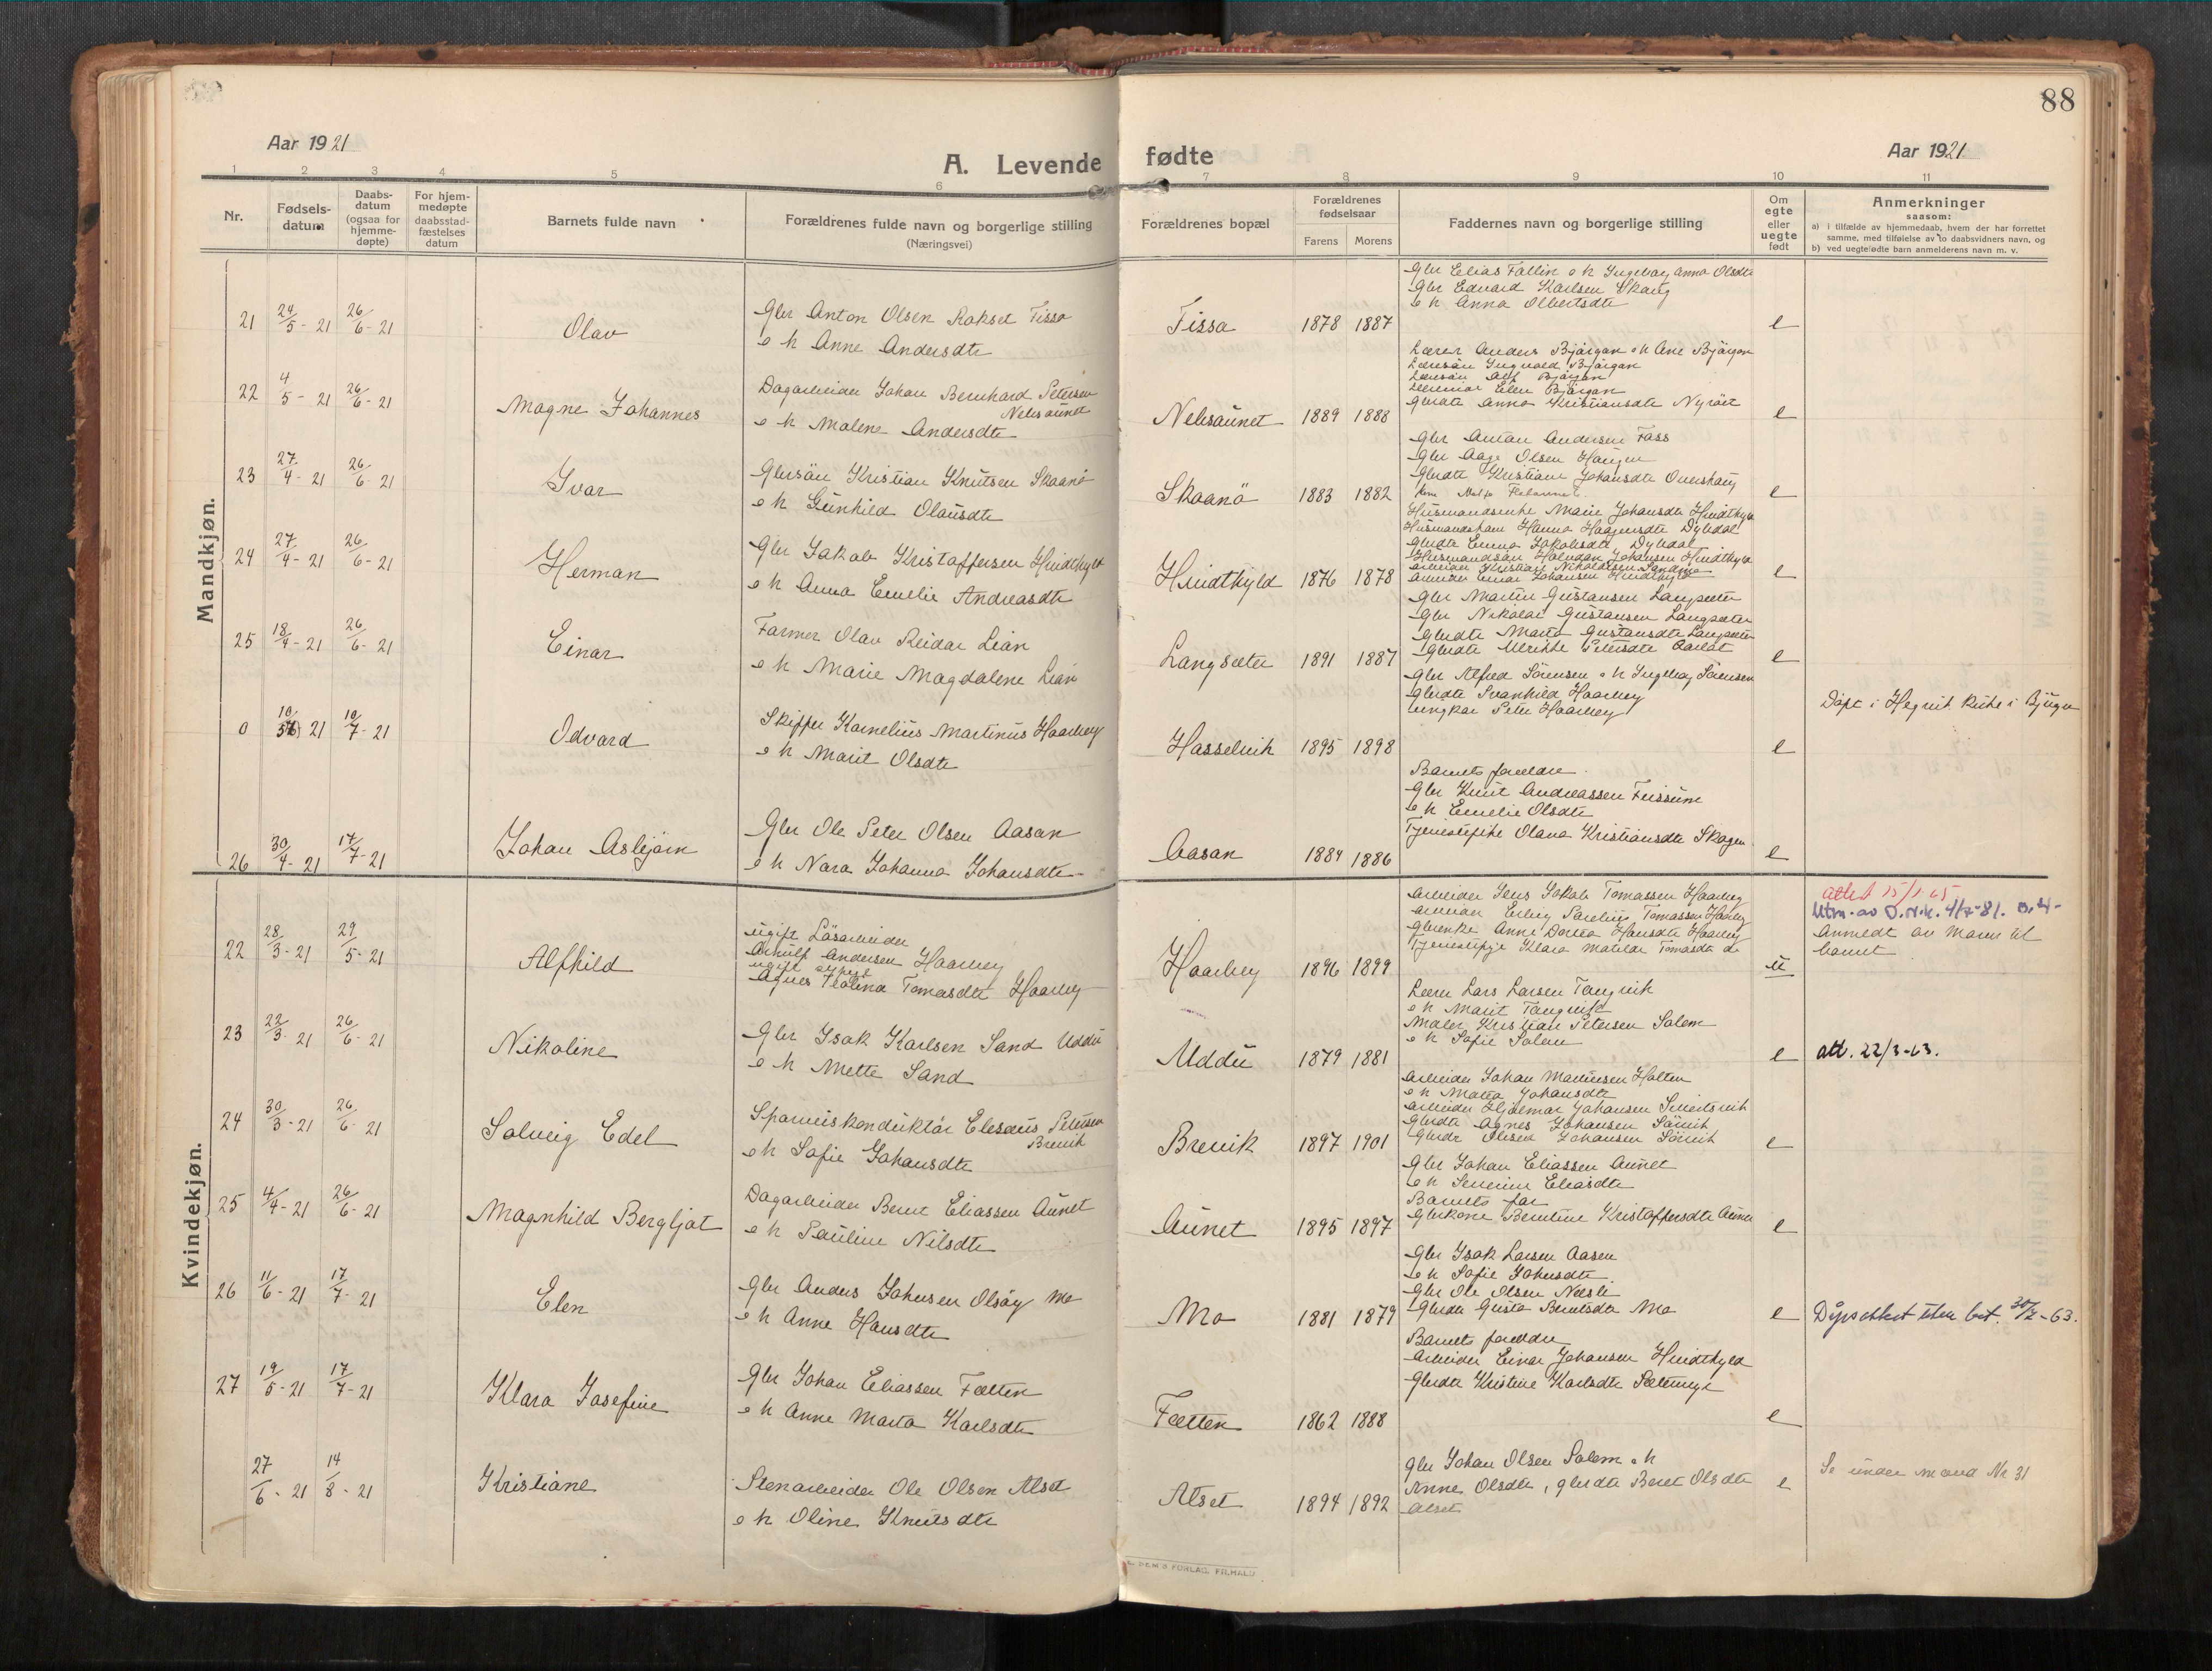 88
Aar 1921
A. Levende fødte
Aar 1921
1 2 3 4 5 6 7 8 9 10 11
Nr.
Fødsels-
datum
Daabs-
datum
(ogsaa for
hjemme-
døpte)
For hjem-
medøpte
daabsstad-
fæstelses
datum
Barnets fulde navn
Forældrenes fulde navn og borgerlige stilling
(Næringsvei)
Forældrenes bopæl
Forældrenes
fødselsaar
Farens Morens
Faddernes navn og borgerlige stilling
Om
egte
eller
uegte
født
Anmerkninger
saasom:
a) i tilfælde av hjemmedaab, hvem der har forrettet
samme, med tilføielse av to daabsvidners navn, og
b) ved uegtefødte barn anmelderens navn m. v.
Mandkjøn.
21 24/5-21 26/6-21 Olav
Gbr Anton Olsen Rokset Fissa
o h Anne Andersdtr
Fissa 1878 1887
Gbr Elias Fallin o h Ingeborg Anna Olsdtr
Gbr Edvard Karlsen Skaug
o h Anna Olbertsdtr
e
22 4/5-21 26/6-21 Magne Johannes
Dagarbeider Johan Bernhard Petersen
Nebsaunet
o h Malene Andersdtr
Nebsaunet 1889 1888
Lærer Anders Bjørgan o h Ane Bjørgan
Lærersön Ingvald Bjørgan
Lærersön Alf Bjørgan
Ellen Bjørgan
Gbrdtr Anna Kristiansdtr Nyröet
e
23 27/4-21 26/6-21 Ivar
Gbrsön Kristian Knutsen Skaanö
o h Gunhild Olausdtr
Skaanö 1883 1882
Gbr Anton Andersen Fass
Gbr Aage Olsen Haugen
Gbrdtr Kristiane Johansdtr Overshaug
e
24 27/4-21 26/6-21 Herman
Gbr Jakob Kristoffersen Hindthyld
o h Anna Emelie Andreasdtr
Hindthyld 1876 1878
Husmandsenke Marie Johansdtr Hindthyld
Husmandskone Hanna Haagensdtr Dybdal
Gbrdtr Emma Jakobsdtr Dybdal
Husmandsön Halvdan Johansen Hindthyld
Arbeider Kristian Nikolaisen Sandmo
Arbeider Einar Johansen Hindthyld
e
25 18/4-21 26/6-21 Einar
Farmer Olav Reidar Lian
o h Marie Magdalene Lian
Langsæter 1891 1887
Gbr Martin Gustavsen Langsæter
Gbr Nikolai Gustavsen Langsæter
Gbrdtr Marta Gustavsdtr Langsæter
Gbrdtr Ulrikke Petersdtr
e
0 10/5 21 10/7-21 Odvard
Skipper Kornelius Martinus Haarberg
o h Marit Olsdtr
Hasselvik 1895 1898
Gbr Alfred Sörensen o h Ingeborg Sörensen
Gbrdtr Svanhild Haarberg
Ungkar Peter Haarberg
e
Döpt i Hegvik kirke i Bjugn
26 30/4-21 17/7-21 Johan Asbjörn
Gbr Ole Peter Olsen Aasan
o h Nara Johanna Johansdtr
Aasan 1884 1886
Barnets foreldre
Gbr Knut Andreassen Frissum
o h Emelie Olsdtr
Tjenestepike Olava Kristiansdtr Skogen
e
Kvindekjøn.
22 28/3-21 29/5-21 Alfhild
ugift Lösarbeider
Arnulf Andersen Haarberg
ugift
Agnes Teolina Tomasdtr Haarberg
Haarberg 1896 1899
Arbeider Jens Jakob Tomassen Haarberg
Arbeider Erling Tomassen Haarberg
Gbrenke Anne Dortea Hansdtr Haarberg
Tjenestepige Klara Matilde Tomasdtr do
u
Attest 15/1-65
Utm. av D.N.k. 4/7-81.
Anmeldt av Moren til
barnet
23 22/3-21 26/6-21 Nikoline
Gbr Isak Karlsen Sand Uddu
o h Mette Sand
Uddu 1879 1881
Lærer Lars Larsen Tangvik
o h Marit Tangvik
Maler Kristian Petersen Solem
o h Sofie Solem
e
att. 22/3-63.
24 30/3-21 26/6-21 Solveig Edel
Sporveiskonduktör Elesæus Petersen
Brevik
o h Sofie Johansdtr
Brevik 1897 1901
Arbeider Johan Martinsen Holten
o h Marta Johansdtr
Arbeider Hjalmar Johansen
Gbrdtr Agnes Johansen Sörvik
Gbrdtr Johansen Sörvik
e
25 4/4-21 26/6-21 Magnhild Bergljot
Dagarbeider Bernt Eliassen Aunet
o h Pauline Nilsdtr
Aunet 1895 1897
Gbr Johan Eliassen Aunet
o h Severine Eliasdtr
Barnets far
Gbrkone Berntine Kristoffersdtr Aunet
e
26 11/6-21 17/7-21 Elen
Gbr Anders Johnsen Olsöy Mo
o h Anne Hansdtr
Mo 1881 1879
Gbr Isak Larsen Aasen
o h Sofie Johnsdtr
Gbr Ole Olsen Næsle
Gbrdtr Gusta Berntsdtr Mo
e
Dåpsattest uten bet. 30/7-63.
27 19/5-21 17/7-21 Klara Josefine
Gbr Johan Eliassen Fætten
o h Anne Marta Karlsdtr
Fætten 1862 1888
Barnets foreldre
Arbeider Einar Johansen Hindthyld
Gbrdtr Kristine Karlsdtr Sætermyr
e
27/6-21 14/8-21 Kristiane
Stenarbeider Ole Olsen Alset
o h Oline Knutsdtr
Alset 1894 1892
Gbr Johan Olsen Solem o h
Anne Olsdtr, gbrdtr Beret Olsdtr
Alset
e
Se under mand Nr 31